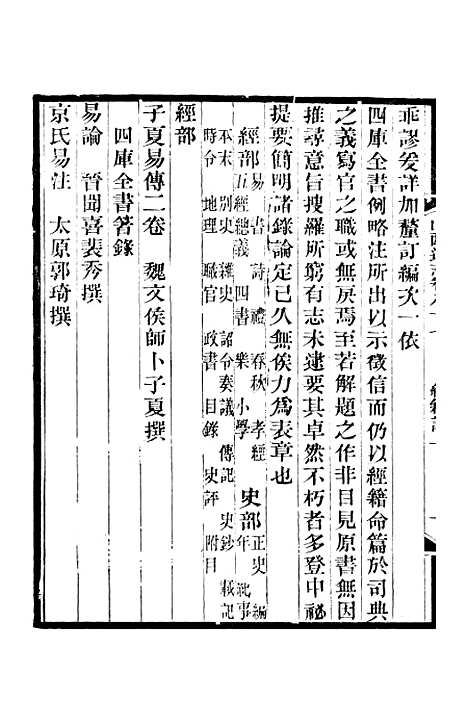 乖謬爰詳加釐訂編次一依
四庫全書例略注所出以示徵信而仍以經籍命篇於司典
之義寫官之職或無戾焉至若解題之作非目見原書無因
推尋意旨搜羅所窮有志未逮要其卓然不朽者多登中祕
提要簡明諸錄論定已久無俟力爲表章也
經部 易 書 詩 禮 春秋 孝經
五經總義 四書 樂 小學
史部 正史 編
年 紀事
本末 別史 雜史 詔令奏議 傳記 史鈔 載記
時令 地理 職官 政書 目錄 史評 附目
經部
子夏易傳二卷 魏文侯師卜子夏撰
四庫全書著錄
易論 晉聞喜裴秀撰
京氏易注 太原郭琦撰